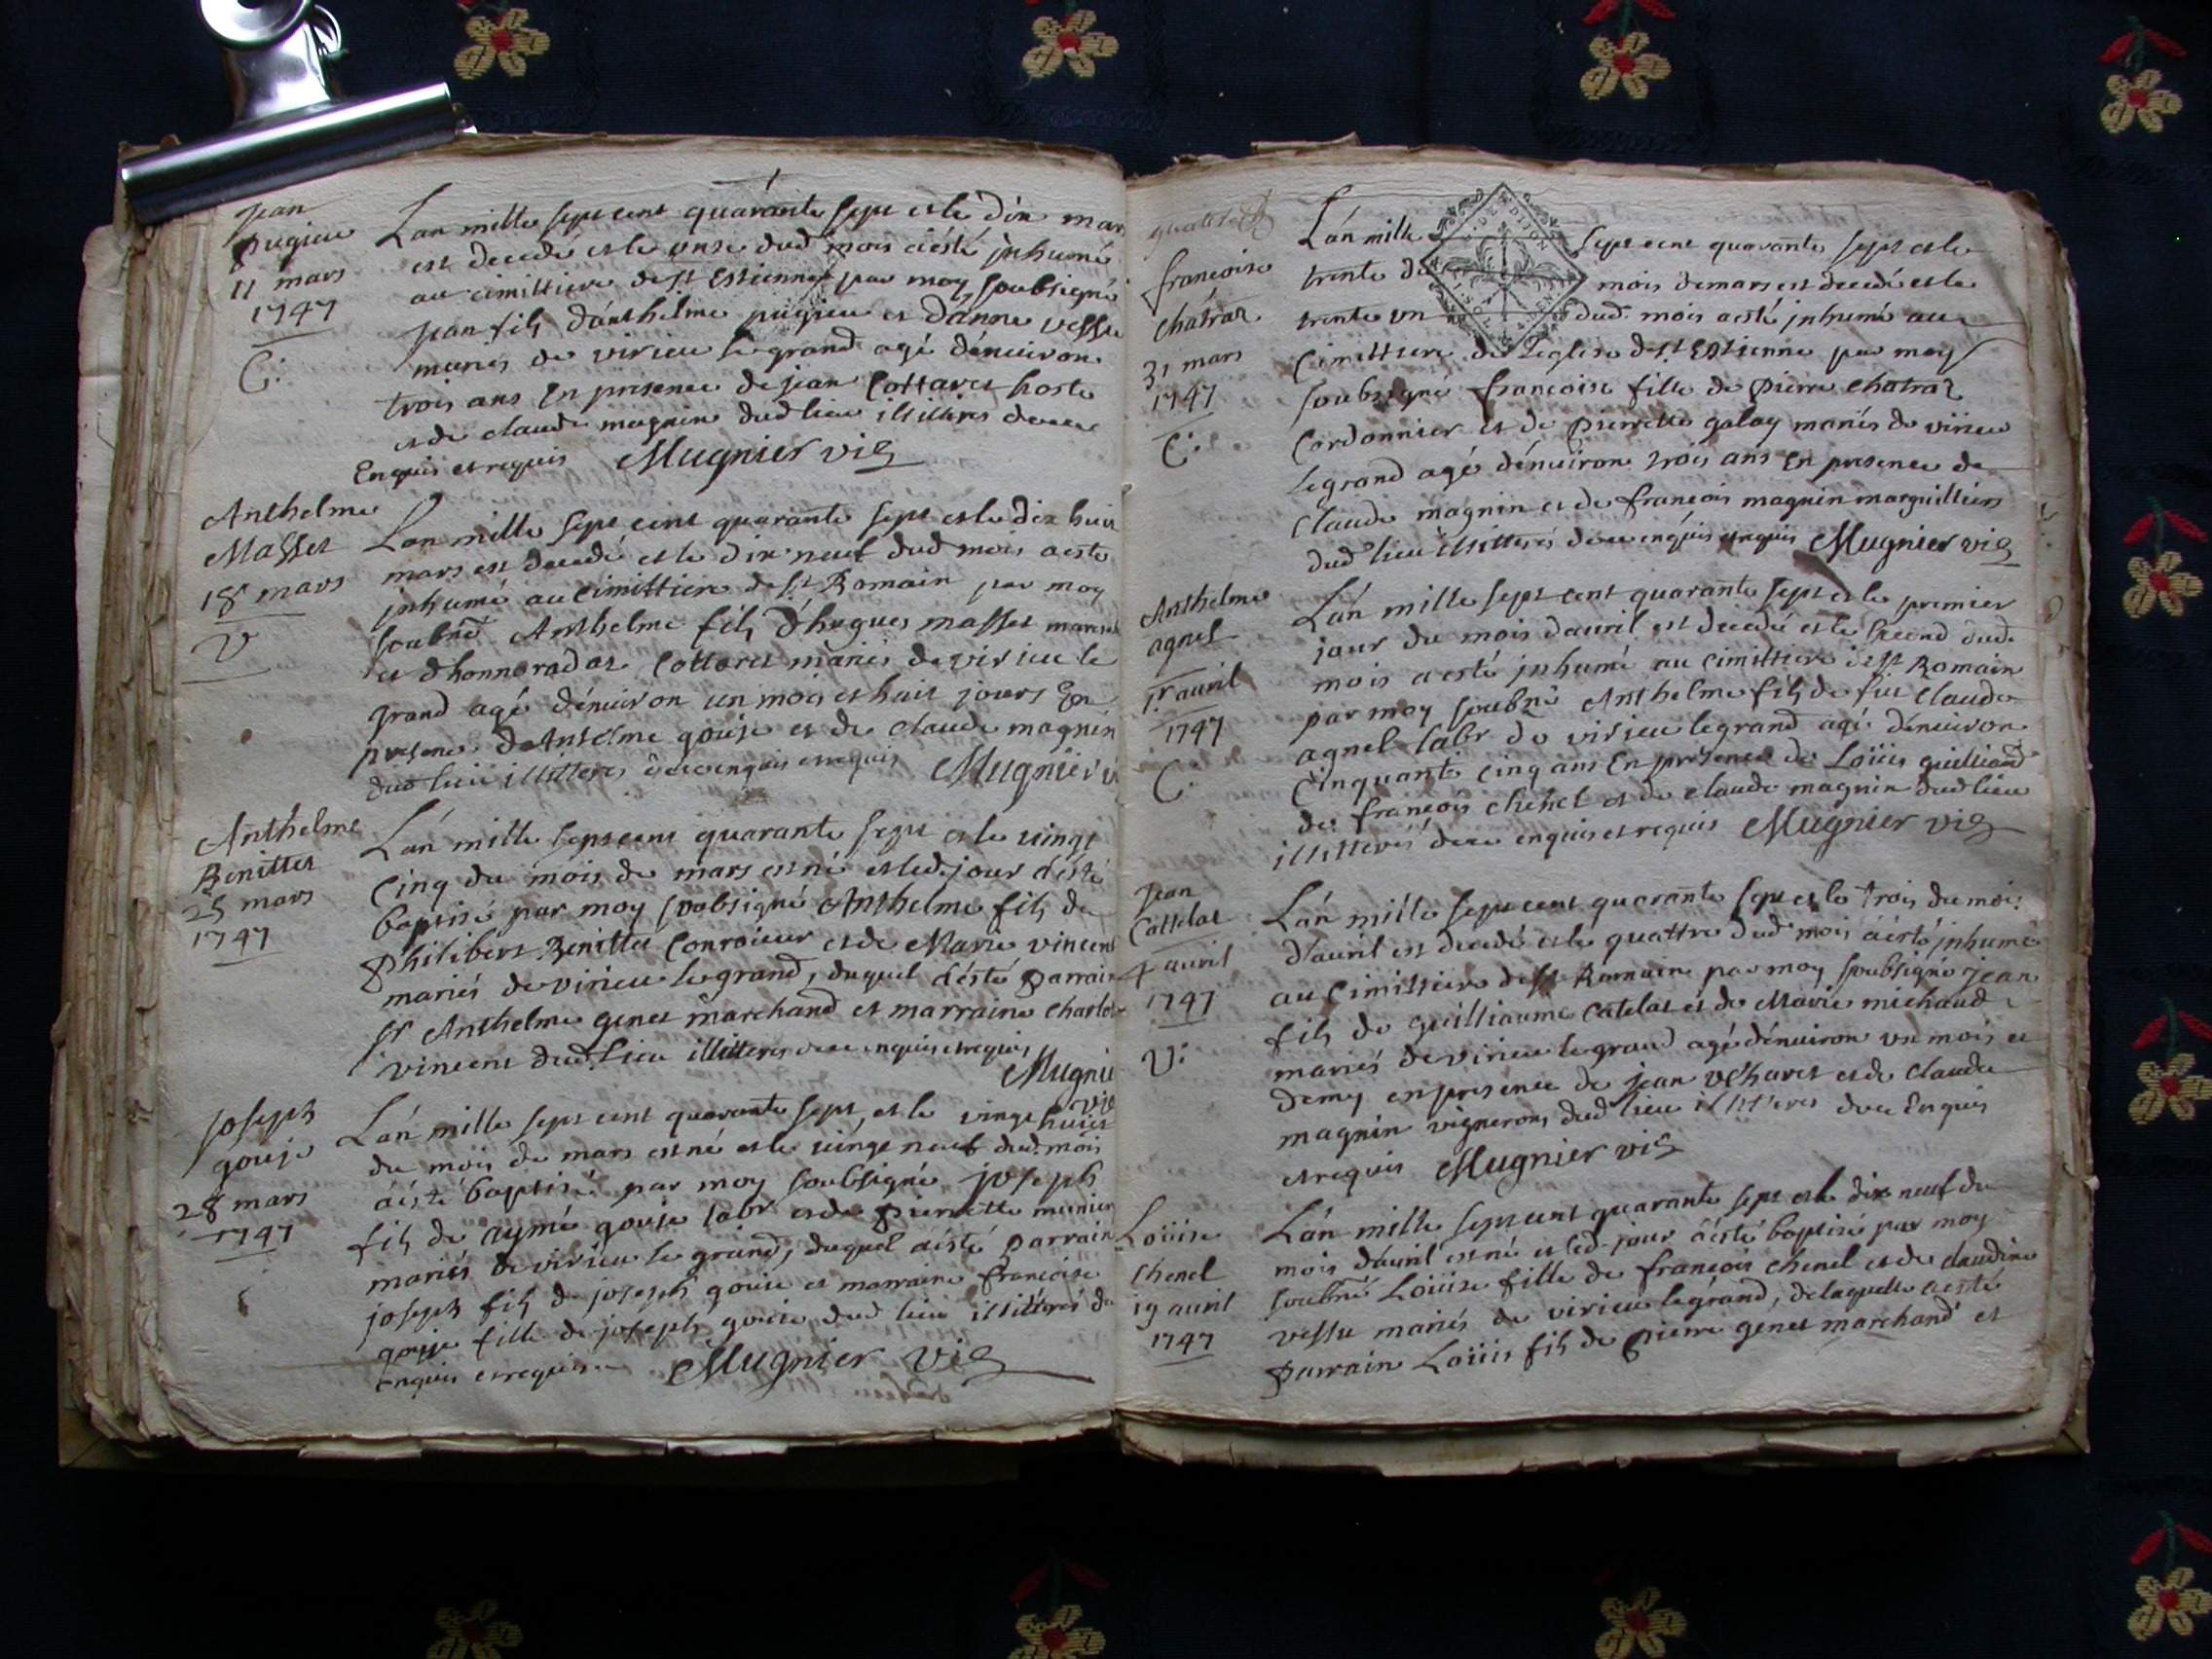 Jean
pugieu
11 mars
1747
C.
Lan mille sept cent quarante sept et le dix mars
est decedé et le onze dud mois aésté jnhumé
au cimittiere de St Estienne par moy soubsigné
Jean fils d'anthelme pugieu et d'anne vessu
mariés de virieu le grand agé dénuiron
trois ans En presence de jean Cottaret hoste
et de claude magnin dud lieu illitteres de ce
Enquis et requis Mugnier vic
Anthelme
Masset
18 mars
V
Lan mille sept cent quarante sept et le dix huit
mars est decedé et le dix neuf dud mois aesté
jnhumé au cimittiere de St Romain par moy
soubné Anthelme fils d'hugues masset
et d'honnorade Cottaret mariés de virieu le
grand agé dénuiron un mois et huit jours En
presence d'Antelme gouje et de claude magnin
dud lieu illitteres de ce enquis et requis Mugnier
Anthelme
Benittet
25 mars
1747
L'an mille sept cent quarante sept et le vingt
Cinq du mois de mars est né et led. jour aésté
baptisé par moy soubsigné Anthelme fils de
philibert Benittet Conroieur et de Marie vincent
mariés de virieu le grand, duquel aésté parrain
sr Anthelme genet marchand et marraine Charlotte
vincent dud. lieu illitteres de ce enquis et requis
Mugnier
vic
Joseph
gouje
28 mars
1747
L'an mille sept cent quarante sept et le vingt huict
du mois de mars est né et le vingt neuf dud. mois
aésté baptisé par moy soubsigné joseph
fils de aymé gouje labr et de pierrette munier
mariés de virieu le grand, duquel aésté parrain
joseph fils de joseph gouje et marraine francoise
gouje fille de joseph gouje dud lieu illitterés de
enquis et requis Mugnier vic
francoise
chatraz
31 mars
1747
C.
L'an mille sept cent quarante sept et le
trente du mois de mars est decedé et le
trente un dud. mois aesté jnhumé au
Cimittiere de l'eglise de St Estienne par moy
soubsigné francoise fille de pierre chatraz
Cordonnier et de pierrette galay mariés de virieu
legrand agé dénuiron trois ans En presence de
Claude magnin et de francois magnin marguilliers
dud lieu illitterés de ce enquis et requis Mugnier vic
Anthelme
agnel
1r. auril
1747
C.
L'an mille sept cent quarante sept et le premier
jour du mois dauril est decedé et le second dud.
mois aesté jnhumé au cimittiere de St Romain
par moy soubné Anthelme fils de feu Claude
agnel labr de virieu legrand agé dénuiron
Cinquante cinq ans En presence de Loüis guilliand
de francois chenel et de claude magnin dud lieu
illitterés de ce enquis et requis Mugnier vic
Jean
Cattelat
4 auril
1747
V.
L'an mille sept cent quarante sept et le trois du mois
d'auril est decedé et le quattre dud mois aésté jnhumé
au Cimittiere de St Romain par moy soubsigné jean
fils de guilliaume Catelat et de Marie michaud
mariés de virieu le grand agé dénuiron un mois et
demy en presence de jean et de claude
magnin vignerons dud lieu illitteres de ce Enquis
et requis Mugnier vic
Loüise
Chenel
19 auril
1747
L'an mille sept cent quarante sept et le dix neuf du
mois d'auril est né et led. jour aésté baptisé par moy
soubné Loüise fille de francois chenel et de claudine
vessu mariés de virieu legrand, de laquelle aesté
parrain Loüis fils de pierre genet marchand et